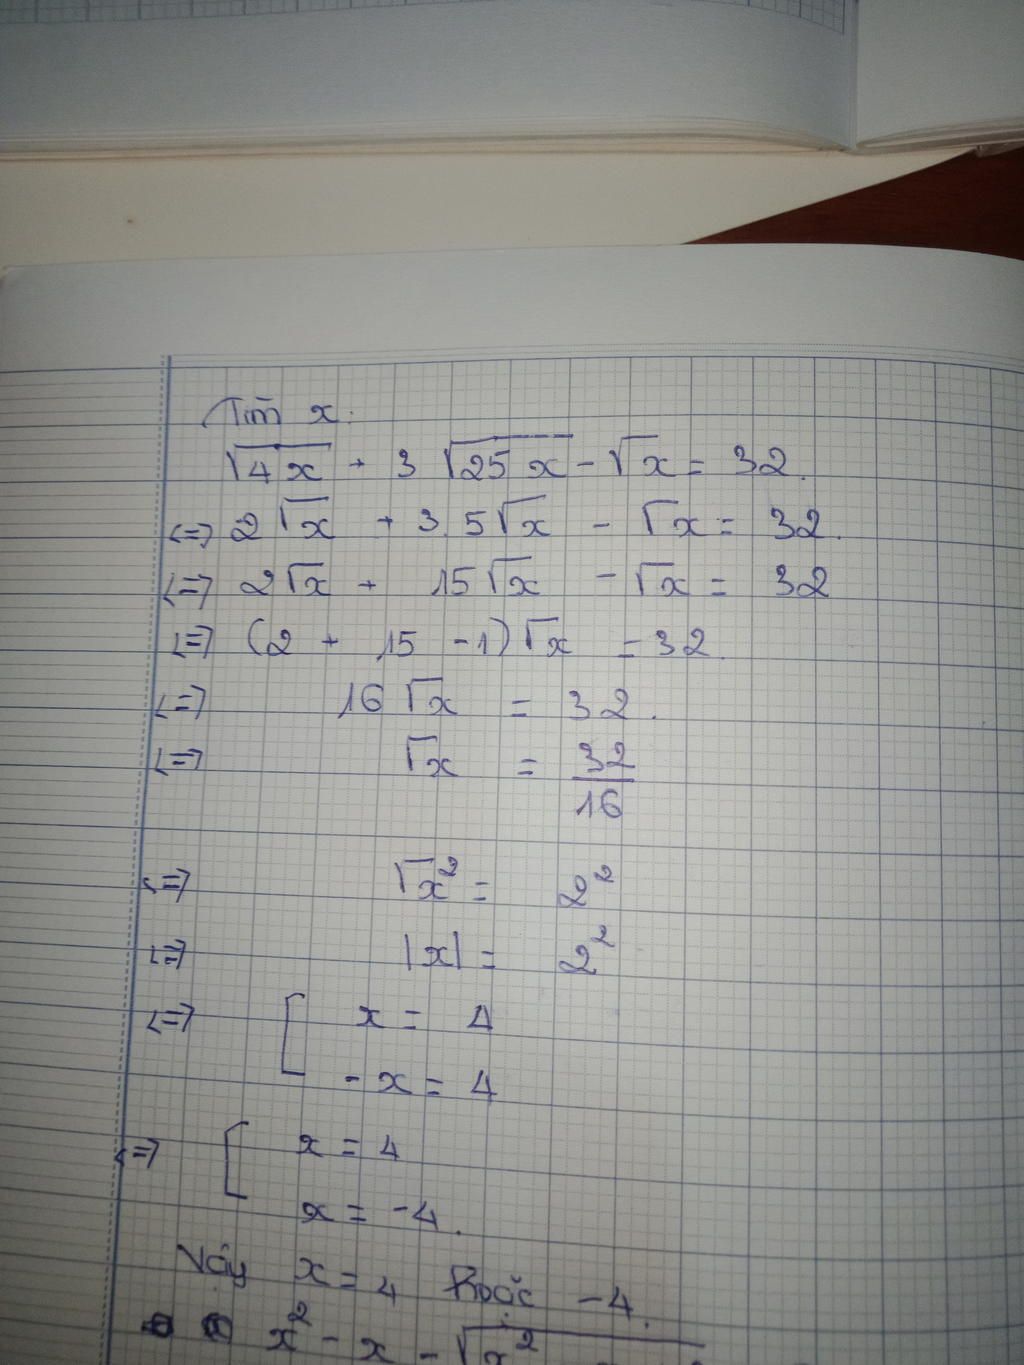 Tìm x:
√4x + 3 √25x - √x = 32.
<=> 2√x + 3.5√x - √x = 32.
<=> 2√x + 15√x - √x = 32
<=> (2 + 15 - 1)√x = 32.
<=> 16√x = 32.
<=> √x = 32/16
<=> √x² = 2²
<=> |x| = 2²
<=> [ x = 4
- x = 4
<=> [ x = 4
x = -4.
Vậy x = 4 hoặc -4.
x² - x - √x²